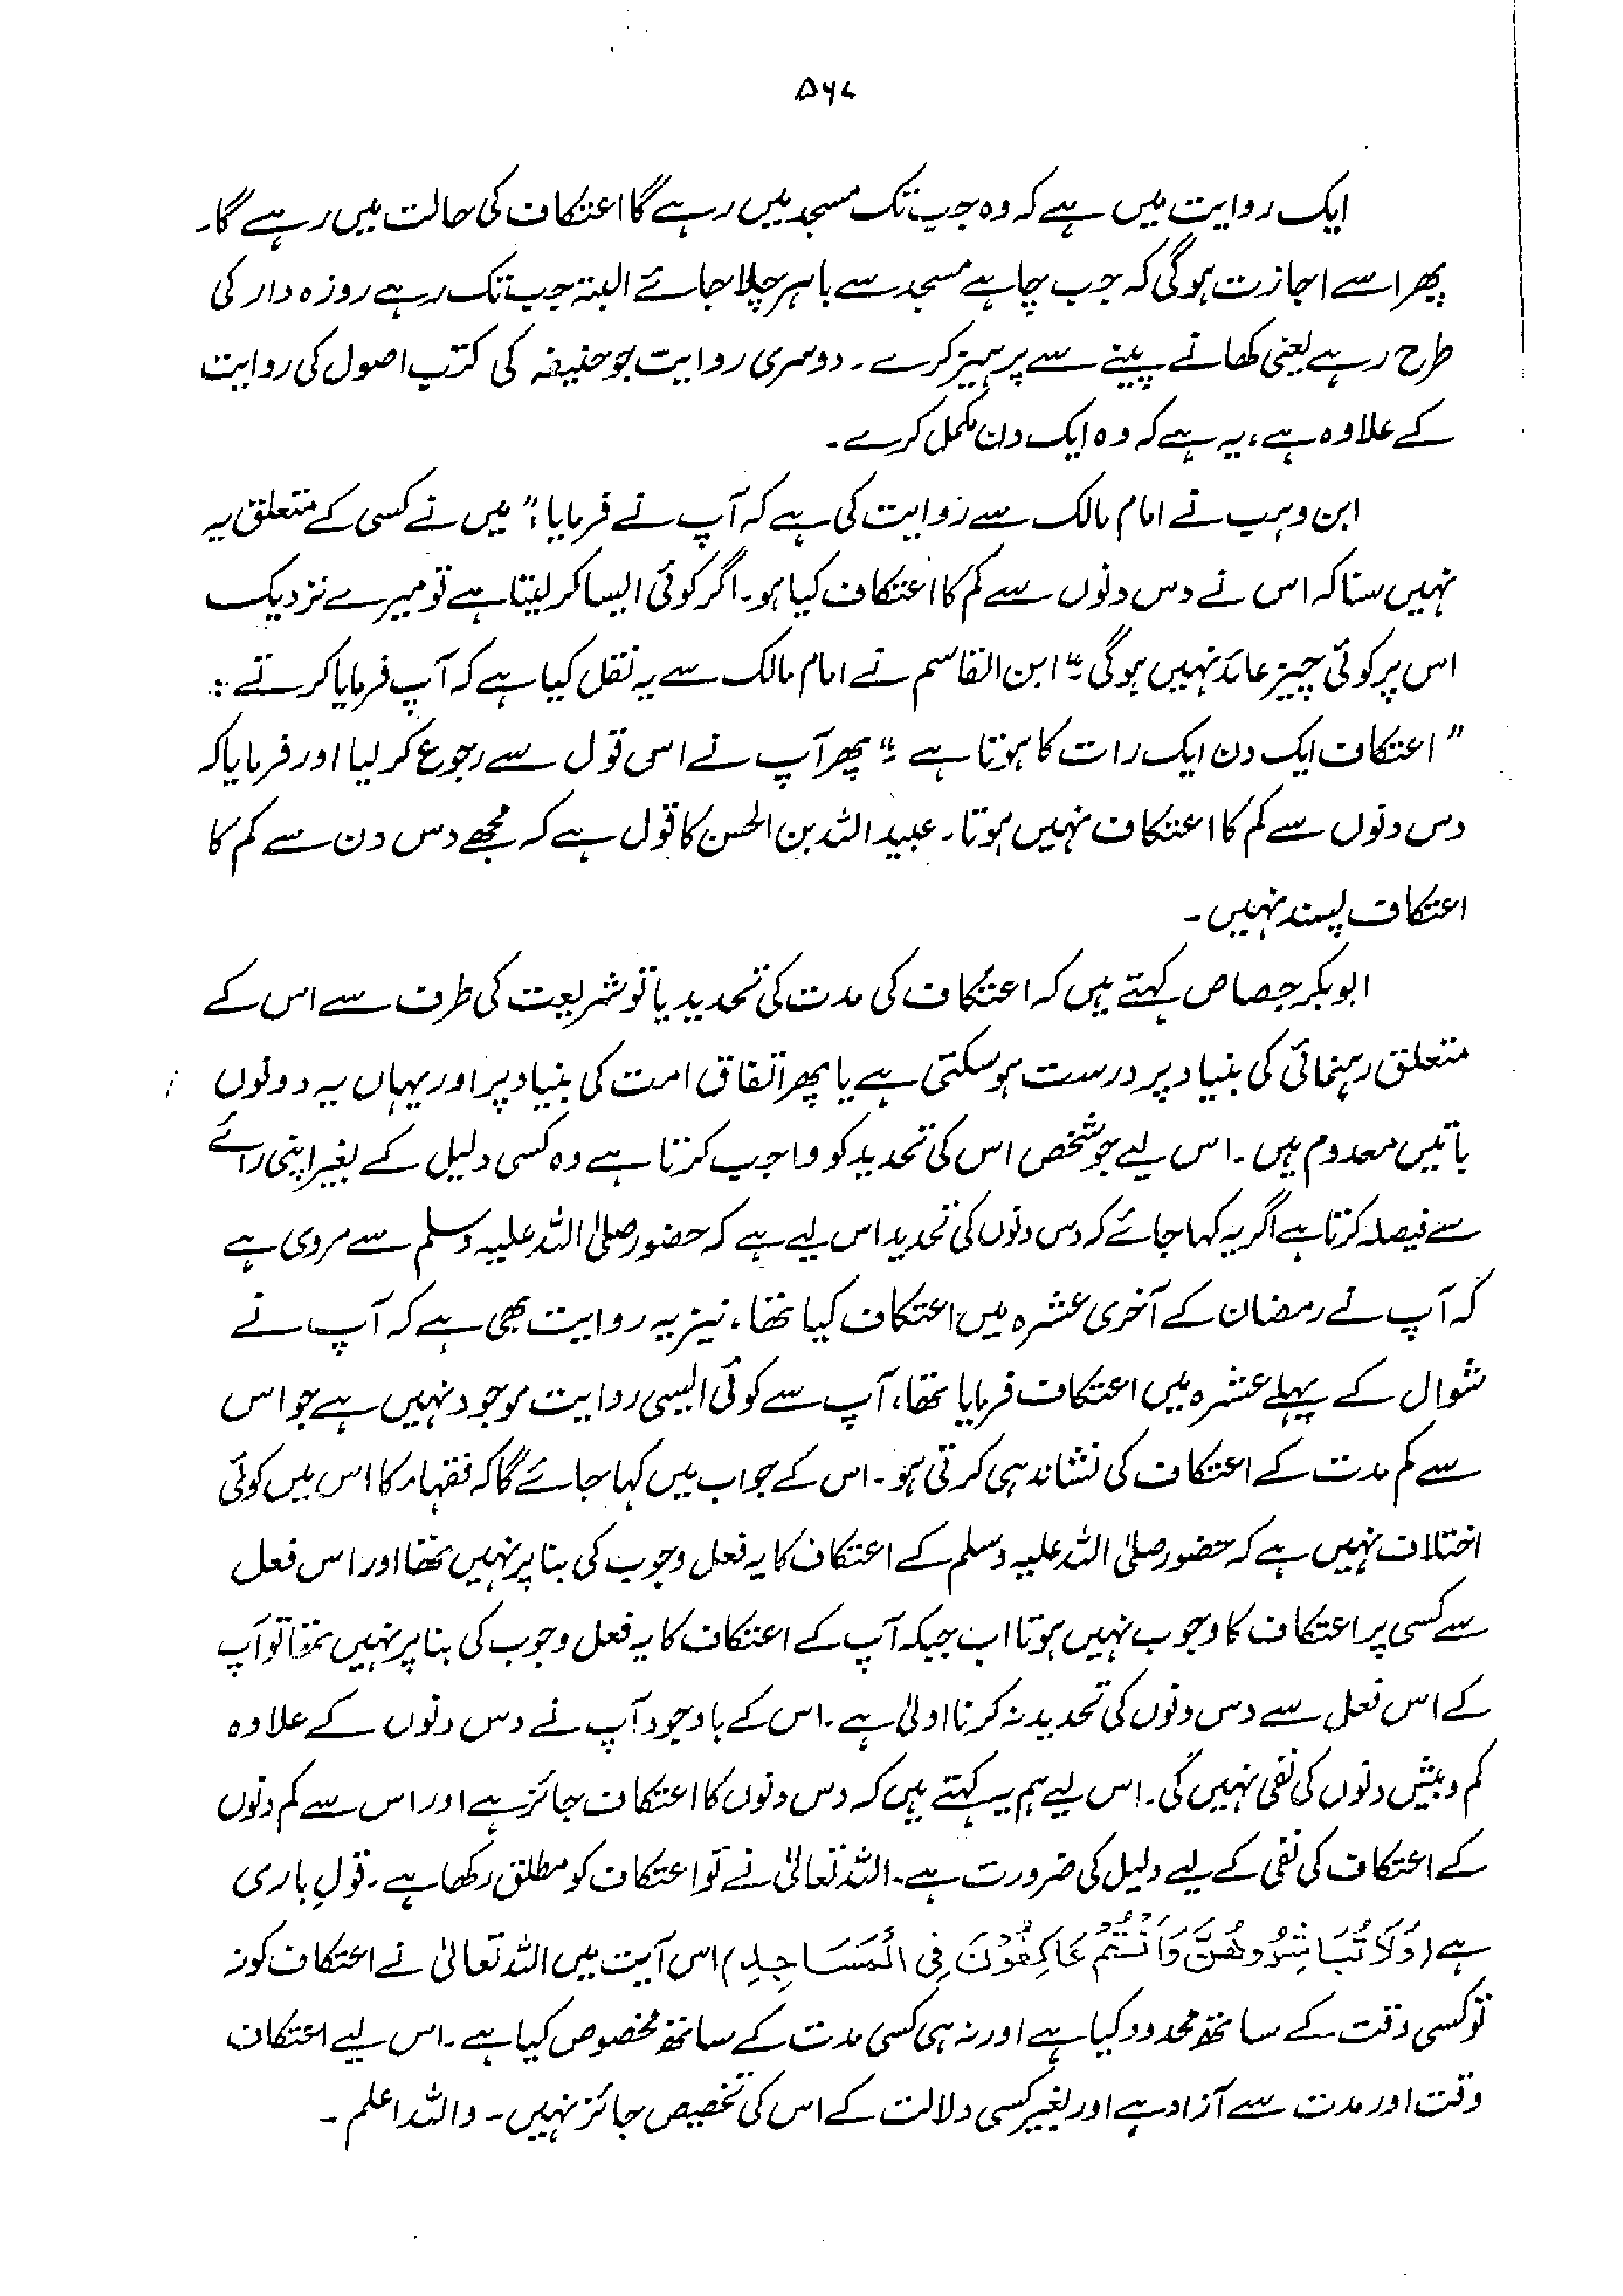 ۵۶۷
ایک روایت میں ہے کہ وہ جب تک مسجد میں رہے گا اعتکاف کی حالت میں رہے گا۔
پھر اسے اجازت ہوگی کہ جب چاہے مسجد سے باہر چلا جائے البتہ جب تک رہے روزہ دار کی
طرح رہے یعنی کھانے پینے سے پرہیز کرے۔ دوسری روایت جو حنیفہ کی کتب اصول کی روایت
کے علاوہ ہے، یہ ہے کہ وہ ایک دن مکمل کرے۔
ابن وہب نے امام مالک سے روایت کی ہے کہ آپ نے فرمایا: "میں نے کسی کے متعلق یہ
نہیں سنا کہ اس نے دس دنوں سے کم کا اعتکاف کیا ہو۔ اگر کوئی ایسا کر لیتا ہے تو میرے نزدیک
اس پر کوئی چیز عائد نہیں ہوگی۔" ابن القاسم نے امام مالک سے یہ نقل کیا ہے کہ آپ فرمایا کرتے:
"اعتکاف ایک دن ایک رات کا ہوتا ہے۔" پھر آپ نے اس قول سے رجوع کر لیا اور فرمایا کہ
دس دنوں سے کم کا اعتکاف نہیں ہوتا۔ عبید اللہ بن الحسن کا قول ہے کہ مجھے دس دن سے کم کا
اعتکاف پسند نہیں۔
ابوبکر جصاص کہتے ہیں کہ اعتکاف کی مدت کی تحدید یا تو شریعت کی طرف سے اس کے
متعلق رہنمائی کی بنیاد پر درست ہوسکتی ہے یا پھر اتفاق امت کی بنیاد پر اور یہاں یہ دونوں
باتیں معدوم ہیں۔ اس لیے جو شخص اس کی تحدید کو واجب کرتا ہے وہ کسی دلیل کے بغیر اپنی رائے
سے فیصلہ کرتا ہے اگر یہ کہا جائے کہ دس دنوں کی تحدید اس لیے ہے کہ حضور صلی اللہ علیہ وسلم سے مروی ہے
کہ آپ نے رمضان کے آخری عشرہ میں اعتکاف کیا تھا، نیز یہ روایت بھی ہے کہ آپ نے
شوال کے پہلے عشرہ میں اعتکاف فرمایا تھا، آپ سے کوئی ایسی روایت موجود نہیں ہے جو اس
سے کم مدت کے اعتکاف کی نشاندہی کرتی ہو۔ اس کے جواب میں کہا جائے گا کہ فقہاء کا اس میں کوئی
اختلاف نہیں ہے کہ حضور صلی اللہ علیہ وسلم کے اعتکاف کا یہ فعل وجوب کی بنا پر نہیں تھا اور اس فعل
سے کسی پر اعتکاف کا وجوب نہیں ہوتا اب جبکہ آپ کے اعتکاف کا یہ فعل وجوب کی بنا پر نہیں تھا تو آپ
کے اس فعل سے دس دنوں کی تحدید نہ کرنا اولیٰ ہے۔ اس کے باوجود آپ نے دس دنوں کے علاوہ
کم و بیش دنوں کی نفی نہیں کی۔ اس لیے ہم یہ کہتے ہیں کہ دس دنوں کا اعتکاف جائز ہے اور اس سے کم دنوں
کے اعتکاف کی نفی کے لیے دلیل کی ضرورت ہے۔ اللہ تعالیٰ نے تو اعتکاف کو مطلق رکھا ہے۔ قولِ باری
ہے (وَلَا تُبَاشِرُوهُنَّ وَاَنْتُمْ عَاكِفُوْنَ فِی الْمَسَاجِدِ) اس آیت میں اللہ تعالیٰ نے اعتکاف کو نہ
تو کسی وقت کے ساتھ محدود کیا ہے اور نہ ہی کسی مدت کے ساتھ مخصوص کیا ہے۔ اس لیے اعتکاف
وقت اور مدت سے آزاد ہے اور بغیر کسی دلالت کے اس کی تخصیص جائز نہیں۔ واللہ اعلم۔